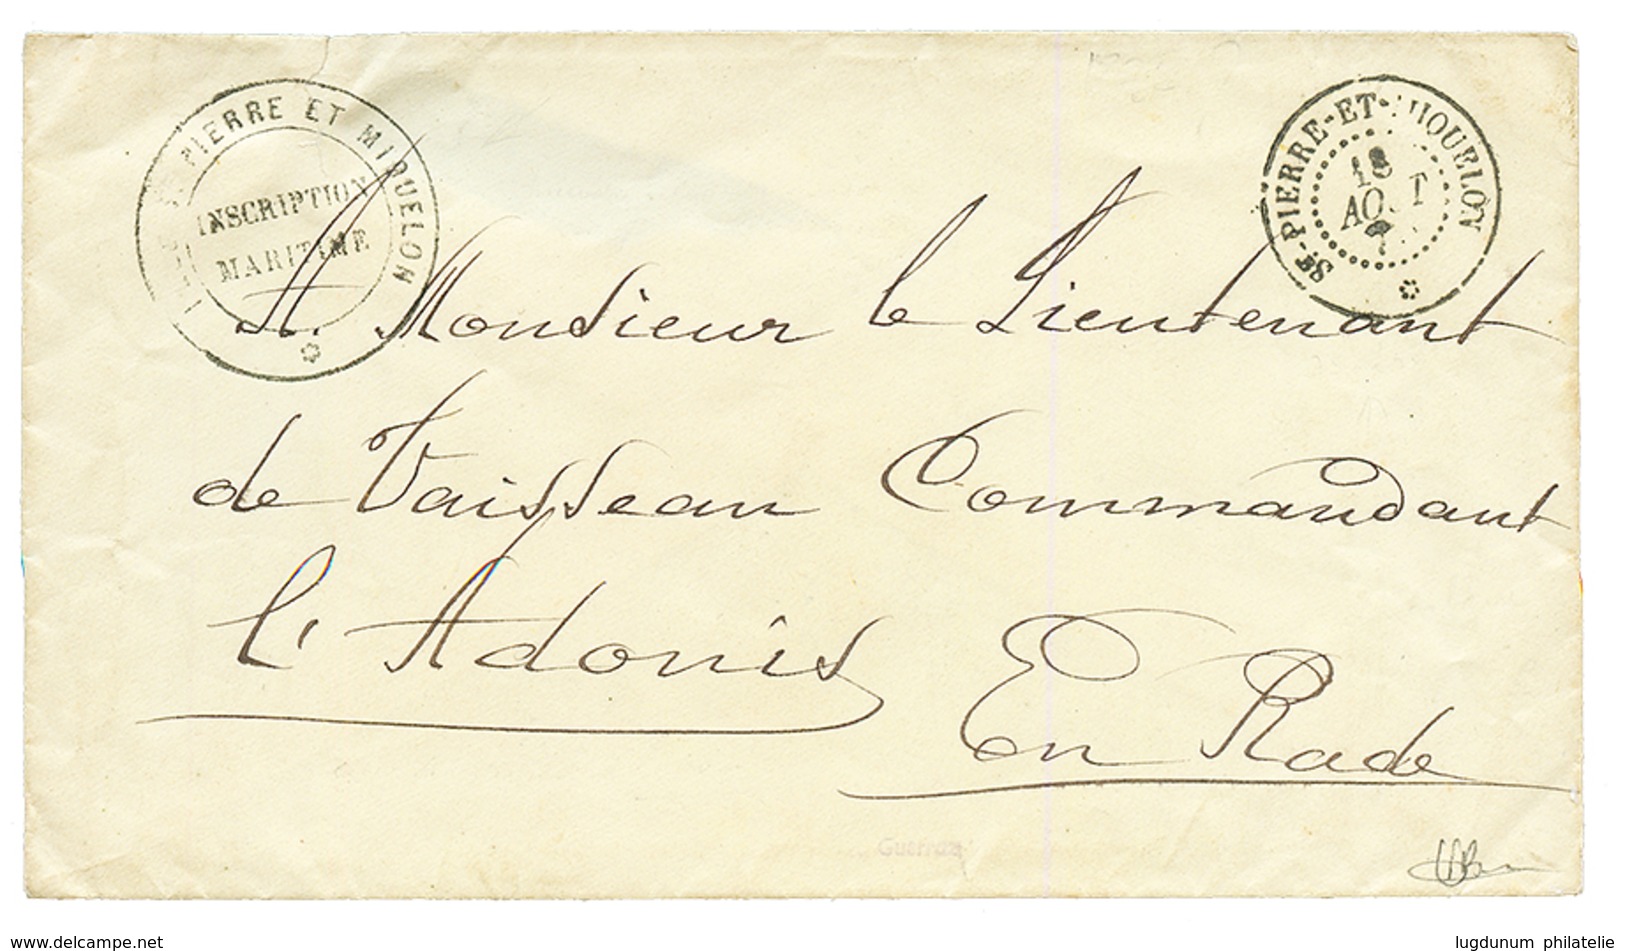 PIERRE ET MIQUELON
INSCRIPTION
MARITIME
ST-PIERRE-ET-MIQUELON
18
AOUT
A Monsieur le Lieutenant
de Vaisseau Commandant
l'Adonis
En Rade
www.delcampe.net
lugdunum philatelie